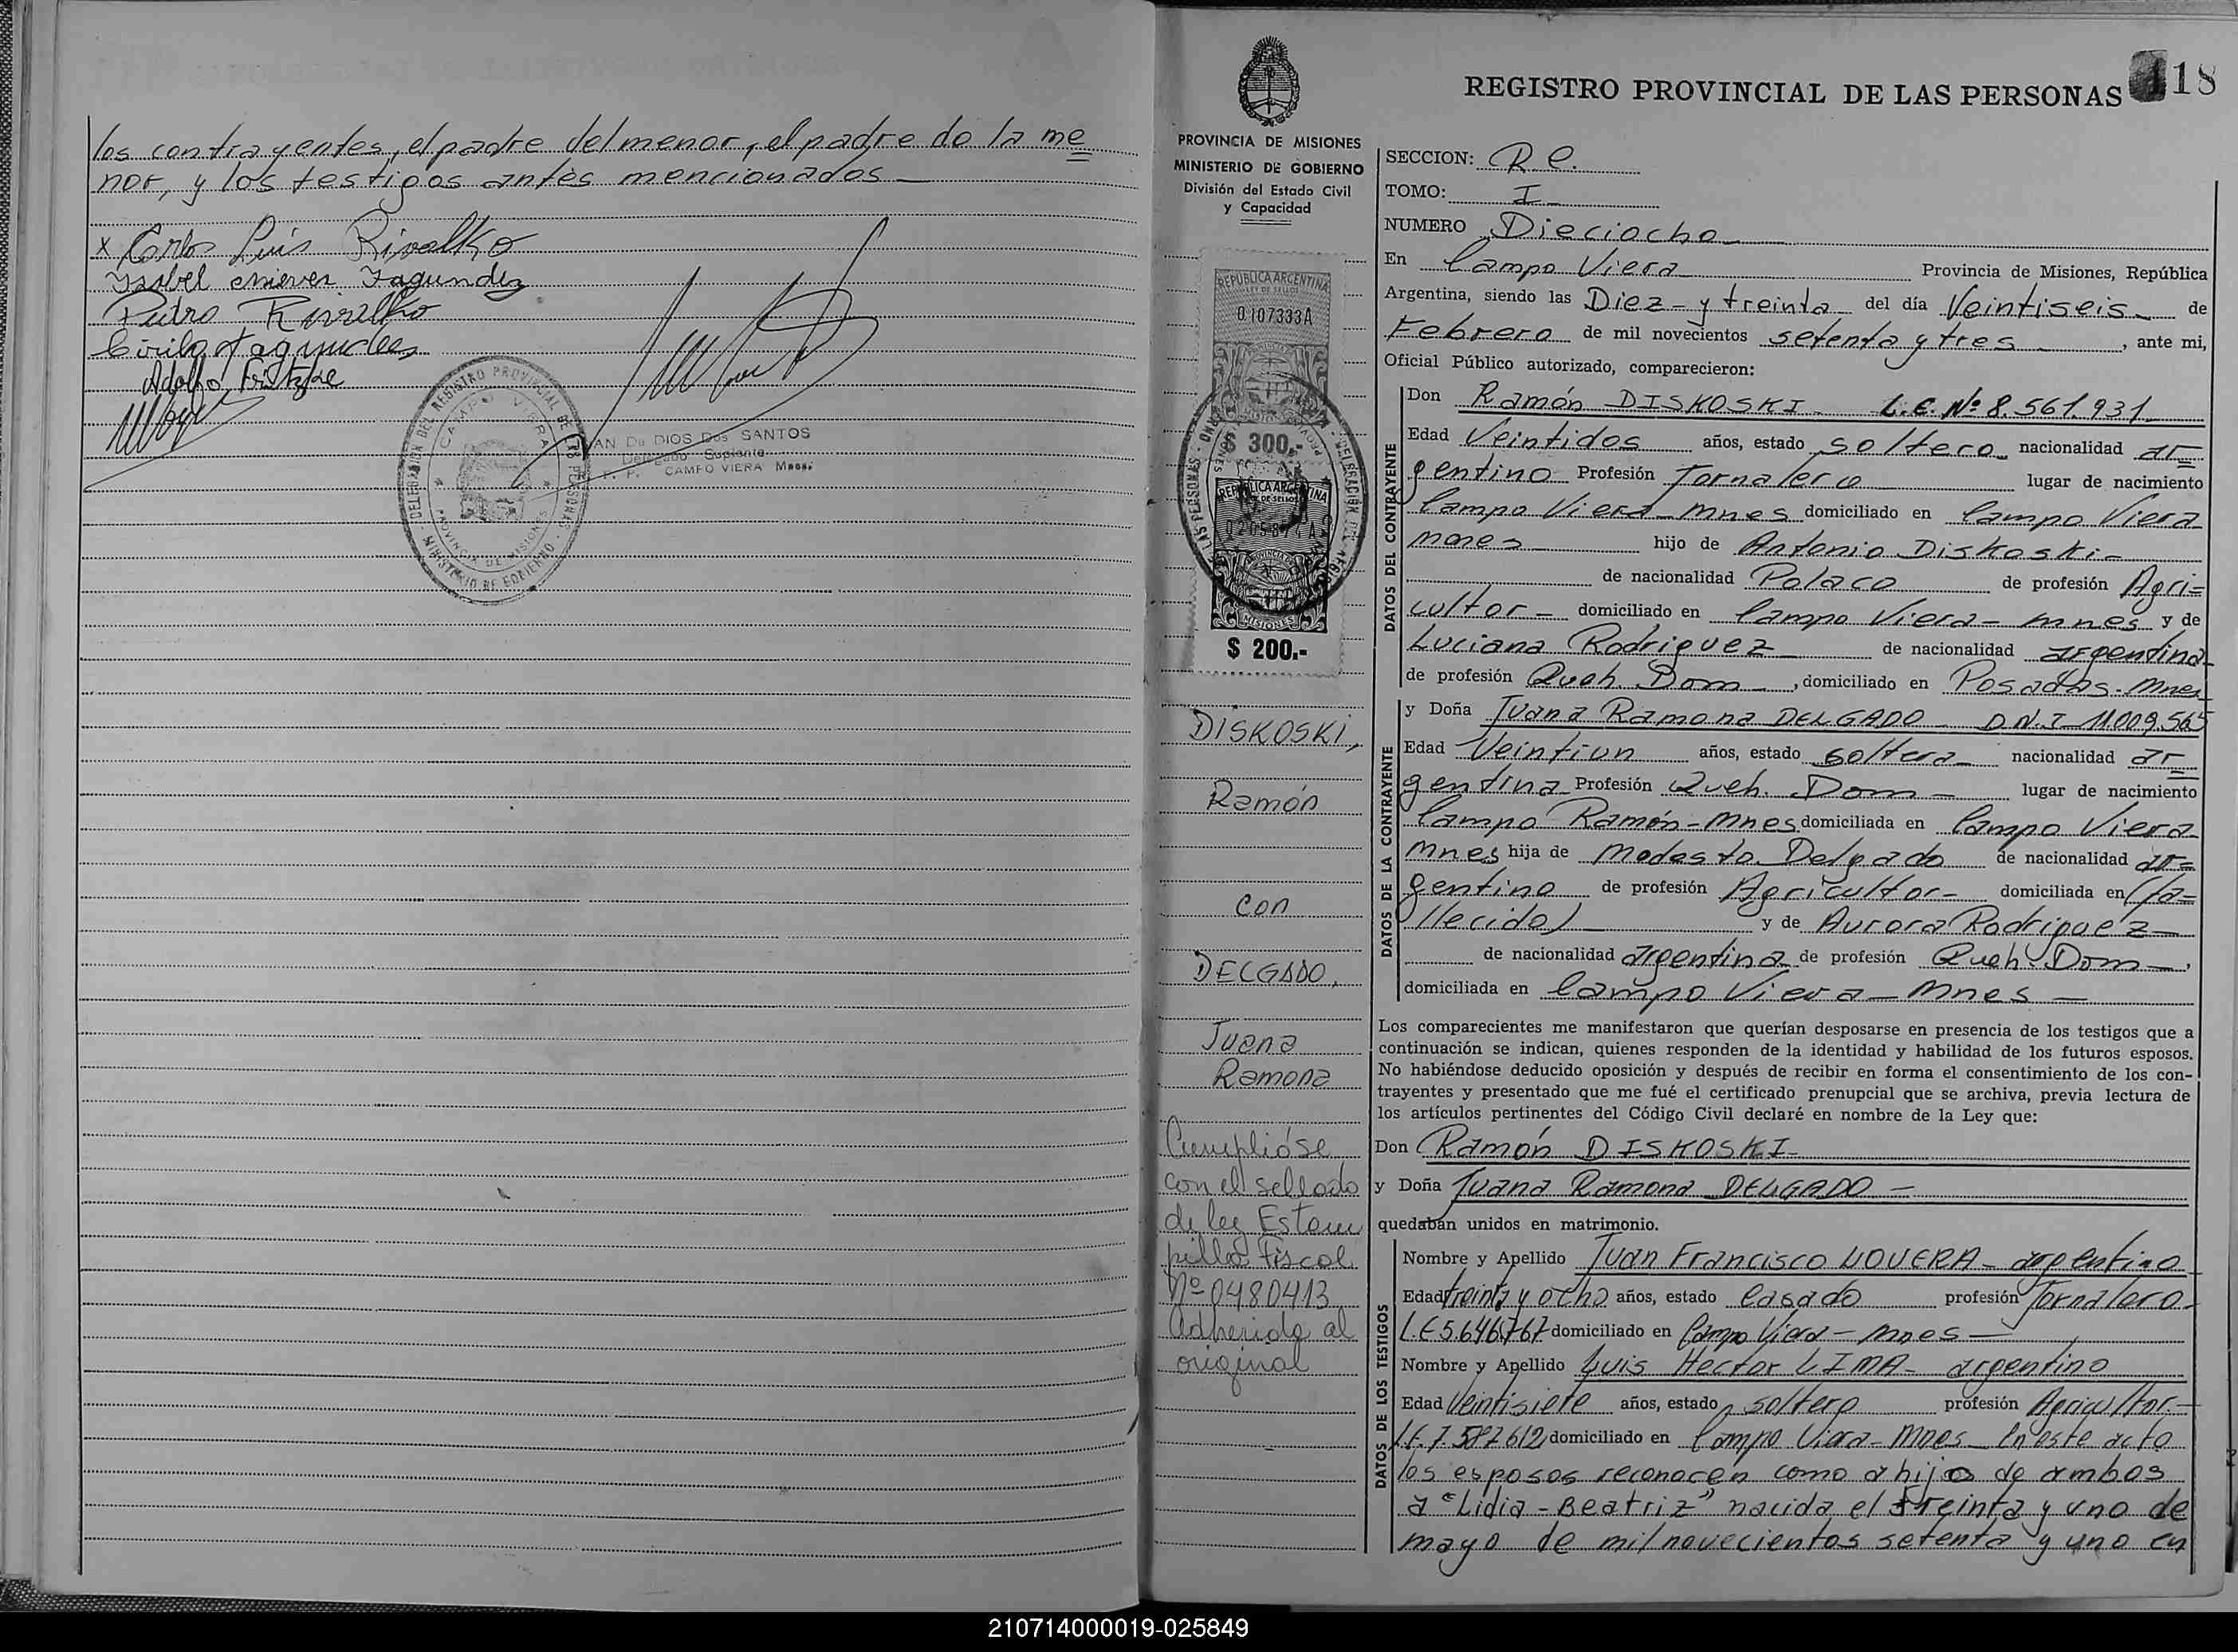 los contrayentes, el padre del menor, el padre de la me=
nor, y los testigos antes mencionados
x Carlos Luis Rivalko
Isabel Nieves Fagundez
Pedro Rivalko
Cirilo Fagundes
Adolfo Fritzke
DELEGACION DEL REGISTRO PROVINCIAL DE LAS PERSONAS
CAMPO VIERA
PROVINCIA DE MISIONES
MINISTERIO DE GOBIERNO
AN De DIOS Dos SANTOS
Delegado Suplente
CAMPO VIERA Mnes.
REGISTRO PROVINCIAL DE LAS PERSONAS
118
PROVINCIA DE MISIONES
MINISTERIO DE GOBIERNO
División del Estado Civil
y Capacidad
REPUBLICA ARGENTINA
LEY DE SELLOS
0107333A
$ 300.-
REPUBLICA ARGENTINA
LEY DE SELLOS
MISIONES
$ 200.-
DISKOSKI,
Ramón
con
DELGADO,
Juana
Ramona
Cumplióse
con el sellado
de ley Estam
pilla Fiscal
Nº 0480413
Adherida al
original
SECCION: R C.
TOMO: I
NUMERO Dieciocho
En Campo Viera Provincia de Misiones, República
Argentina, siendo las Diez - y treinta del día Veintiseis de
Febrero de mil novecientos setenta y tres, ante mi,
Oficial Público autorizado, comparecieron:
DATOS DEL CONTRAYENTE
Don Ramón DISKOSKI L.E. Nº 8.561.931
Edad Veintidos años, estado soltero nacionalidad ar=
gentino Profesión Jornalero lugar de nacimiento
Campo Viera - Mnes domiciliado en Campo Viera
Mnes hijo de Antonio Diskoski -
de nacionalidad Polaco de profesión Agri=
cultor - domiciliado en Campo Viera - Mnes y de
Luciana Rodriguez de nacionalidad argentina
de profesión Queh. Dom, domiciliado en Posadas - Mnes
DATOS DE LA CONTRAYENTE
y Doña Juana Ramona DELGADO D.N.I 11.009.565
Edad Veintiun años, estado soltera nacionalidad ar=
gentina Profesión Queh. Dom - lugar de nacimiento
Campo Ramón - Mnes domiciliada en Campo Viera
Mnes hija de Modesto Delgado de nacionalidad ar=
gentino de profesión Agricultor - domiciliada en (fa=
llecido) y de Aurora Rodriguez -
de nacionalidad argentina de profesión Queh. Dom -,
domiciliada en Campo Viera - Mnes -
Los comparecientes me manifestaron que querían desposarse en presencia de los testigos que a
continuación se indican, quienes responden de la identidad y habilidad de los futuros esposos.
No habiéndose deducido oposición y después de recibir en forma el consentimiento de los con-
trayentes y presentado que me fué el certificado prenupcial que se archiva, previa lectura de
los artículos pertinentes del Código Civil declaré en nombre de la Ley que:
Don Ramón DISKOSKI -
y Doña Juana Ramona DELGADO -
quedaban unidos en matrimonio.
DATOS DE LOS TESTIGOS
Nombre y Apellido Juan Francisco LOVERA - argentino
Edad treinta y ocho años, estado Casado profesión Jornalero -
L.E 5.646.767 domiciliado en Campo Viera - Mnes -
Nombre y Apellido Luis Hector LIMA - argentino
Edad Veintisiete años, estado soltero profesión Agricultor -
L.E. 7.587.612 domiciliado en Campo Viera - Mnes En este acto
los esposos reconocen como a hija de ambos
a "Lidia - Beatriz" nacida el treinta y uno de
mayo de mil novecientos setenta y uno en
210714000019-025849